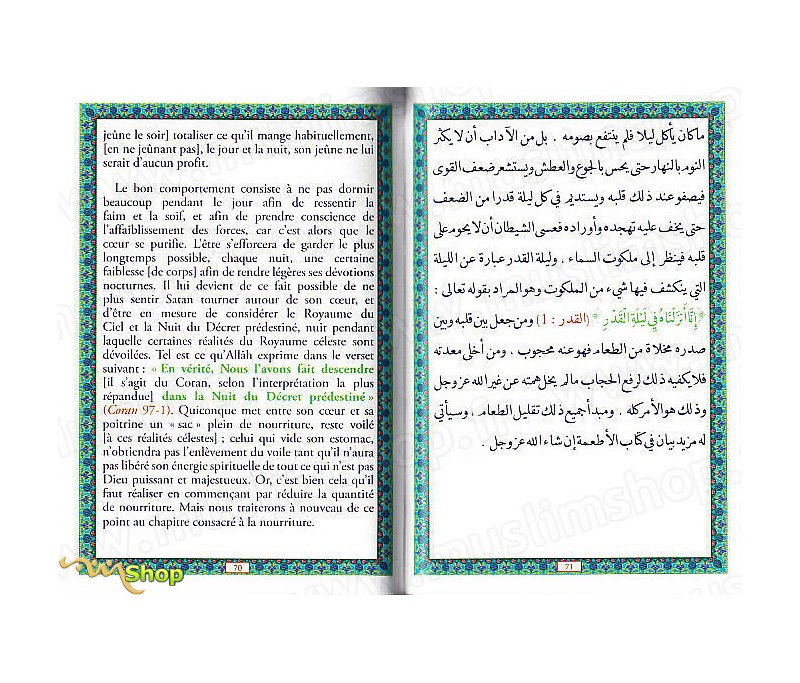 jeûne le soir] totaliser ce qu'il mange habituellement,
[en ne jeûnant pas], le jour et la nuit, son jeûne ne lui
serait d'aucun profit.
Le bon comportement consiste à ne pas dormir
beaucoup pendant le jour afin de ressentir la
faim et la soif, et afin de prendre conscience de
l'affaiblissement des forces, car c'est alors que le
cœur se purifie. L'être s'efforcera de garder le plus
longtemps possible, chaque nuit, une certaine
faiblesse [de corps] afin de rendre légères ses dévotions
nocturnes. Il lui devient de ce fait possible de ne
plus sentir Satan tourner autour de son cœur, et
d'être en mesure de considérer le Royaume du
Ciel et la Nuit du Décret prédestiné, nuit pendant
laquelle certaines réalités du Royaume céleste sont
dévoilées. Tel est ce qu'Allâh exprime dans le verset
suivant : « En vérité, Nous l'avons fait descendre
[il s'agit du Coran, selon l'interprétation la plus
répandue] dans la Nuit du Décret prédestiné »
(Coran 97-1). Quiconque met entre son cœur et sa
poitrine un « sac » plein de nourriture, reste voilé
[à ces réalités célestes] ; celui qui vide son estomac,
n'obtiendra pas l'enlèvement du voile tant qu'il n'aura
pas libéré son énergie spirituelle de tout ce qui n'est pas
Dieu puissant et majestueux. Or, c'est bien cela qu'il
faut réaliser en commençant par réduire la quantité
de nourriture. Mais nous traiterons à nouveau de ce
point au chapitre consacré à la nourriture.
70
ما كان يأكل ليلا فلم ينتفع بصومه . بل من الآداب أن لا يكثر
النوم بالنهار حتى يحس بالجوع والعطش ويستشعر ضعف القوى
فيصفو عند ذلك قلبه ويستديم في كل ليلة قدرا من الضعف
حتى يخف عليه تهجده وأوراده فعسى الشيطان أن لا يحوم على
قلبه فينظر إلى ملكوت السماء . وليلة القدر عبارة عن الليلة
التي ينكشف فيها شيء من الملكوت وهو المراد بقوله تعالى :
﴿إِنَّا أَنزَلْنَاهُ فِي لَيْلَةِ الْقَدْرِ﴾ (القدر : 1) ومن جعل بين قلبه وبين
صدره مخلاة من الطعام فهو عنه محجوب . ومن أخلى معدته
فلا يكفيه ذلك لرفع الحجاب ما لم يخل همته عن غير الله عز وجل
وذلك هو الأمر كله . ومبدأ جميع ذلك تقليل الطعام . وسيأتي
له مزيد بيان في كتاب الأطعمة إن شاء الله عز وجل .
71
Shop